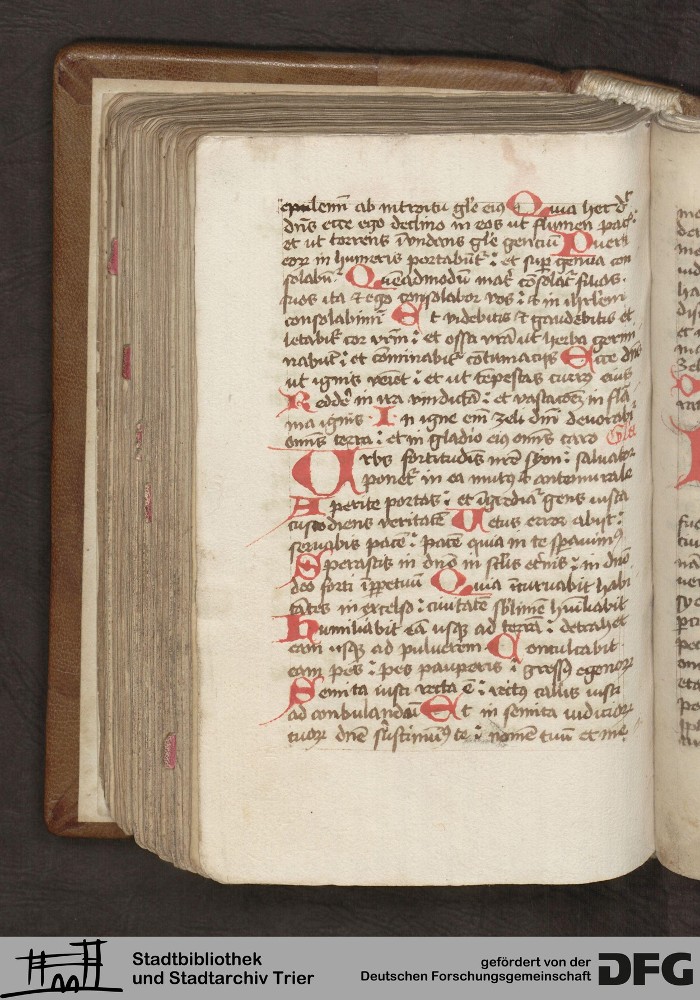 epulemĩ ab introitu gl'e eiꝰ Quia hec d't
dñs ecce ego declino in eos ut flumen pac̃
et ut torrens īundans gl'e gencíu
cor in humeris portabūt᷑ : et sup̱ genua con
solabūt᷑ Quēadmodū mat᷑ cōsolat᷑ filios.
suos ita ⁊ ego consolabor vos : ⁊ in ihrl'em
consolabimī Et videbitis ⁊ gaudebitis et
letabit᷑ cor vr̃m : et ossa vr̃a ut herba germi
nabūt : et cōminabit᷑ cōtumacijs Ecce dñs
ut ignis veīet : et ut tēpestas currꝰ eius
Redde᷑ in ira vindictā : et vastacōeʒ in flā
ma ignis In igne em̃ zeli dnī devorabit᷑
omīs terra : et in gladio eiꝰ omīs caro Gl'a
Urbs fortitudis nr̃e syon : salvator
ponet᷑ in ea murꝰ ⁊ antemurale
Aperite portas : et īgrediat᷑ gens iusta
custodiens veritatē Vetus error abijt :
servabis pacē : pacē quia in te sp̱avimꝰ
Sperastis in dño in sclīs et᷑nis : in dño
deo forti ī ppetuū Quia īcurvabit habi
tātes in excelso : civitatē sb'limē hūiliabit
Humiliabit eā usqꝫ ad terrā : detrahet
eam usqꝫ ad pulverem Conculcabit
eam pes : pes pauperis : gressꝰ egenoꝝ
Semita iusti recta ē : rectꝰ callis iusti
ad ambulandū Et in semita iudicioꝝ
tuoꝝ dñe sustinuimꝰ te : nomē tuū et me
Stadtbibliothek
und Stadtarchiv Trier
gefördert von der
Deutschen Forschungsgemeinschaft DFG